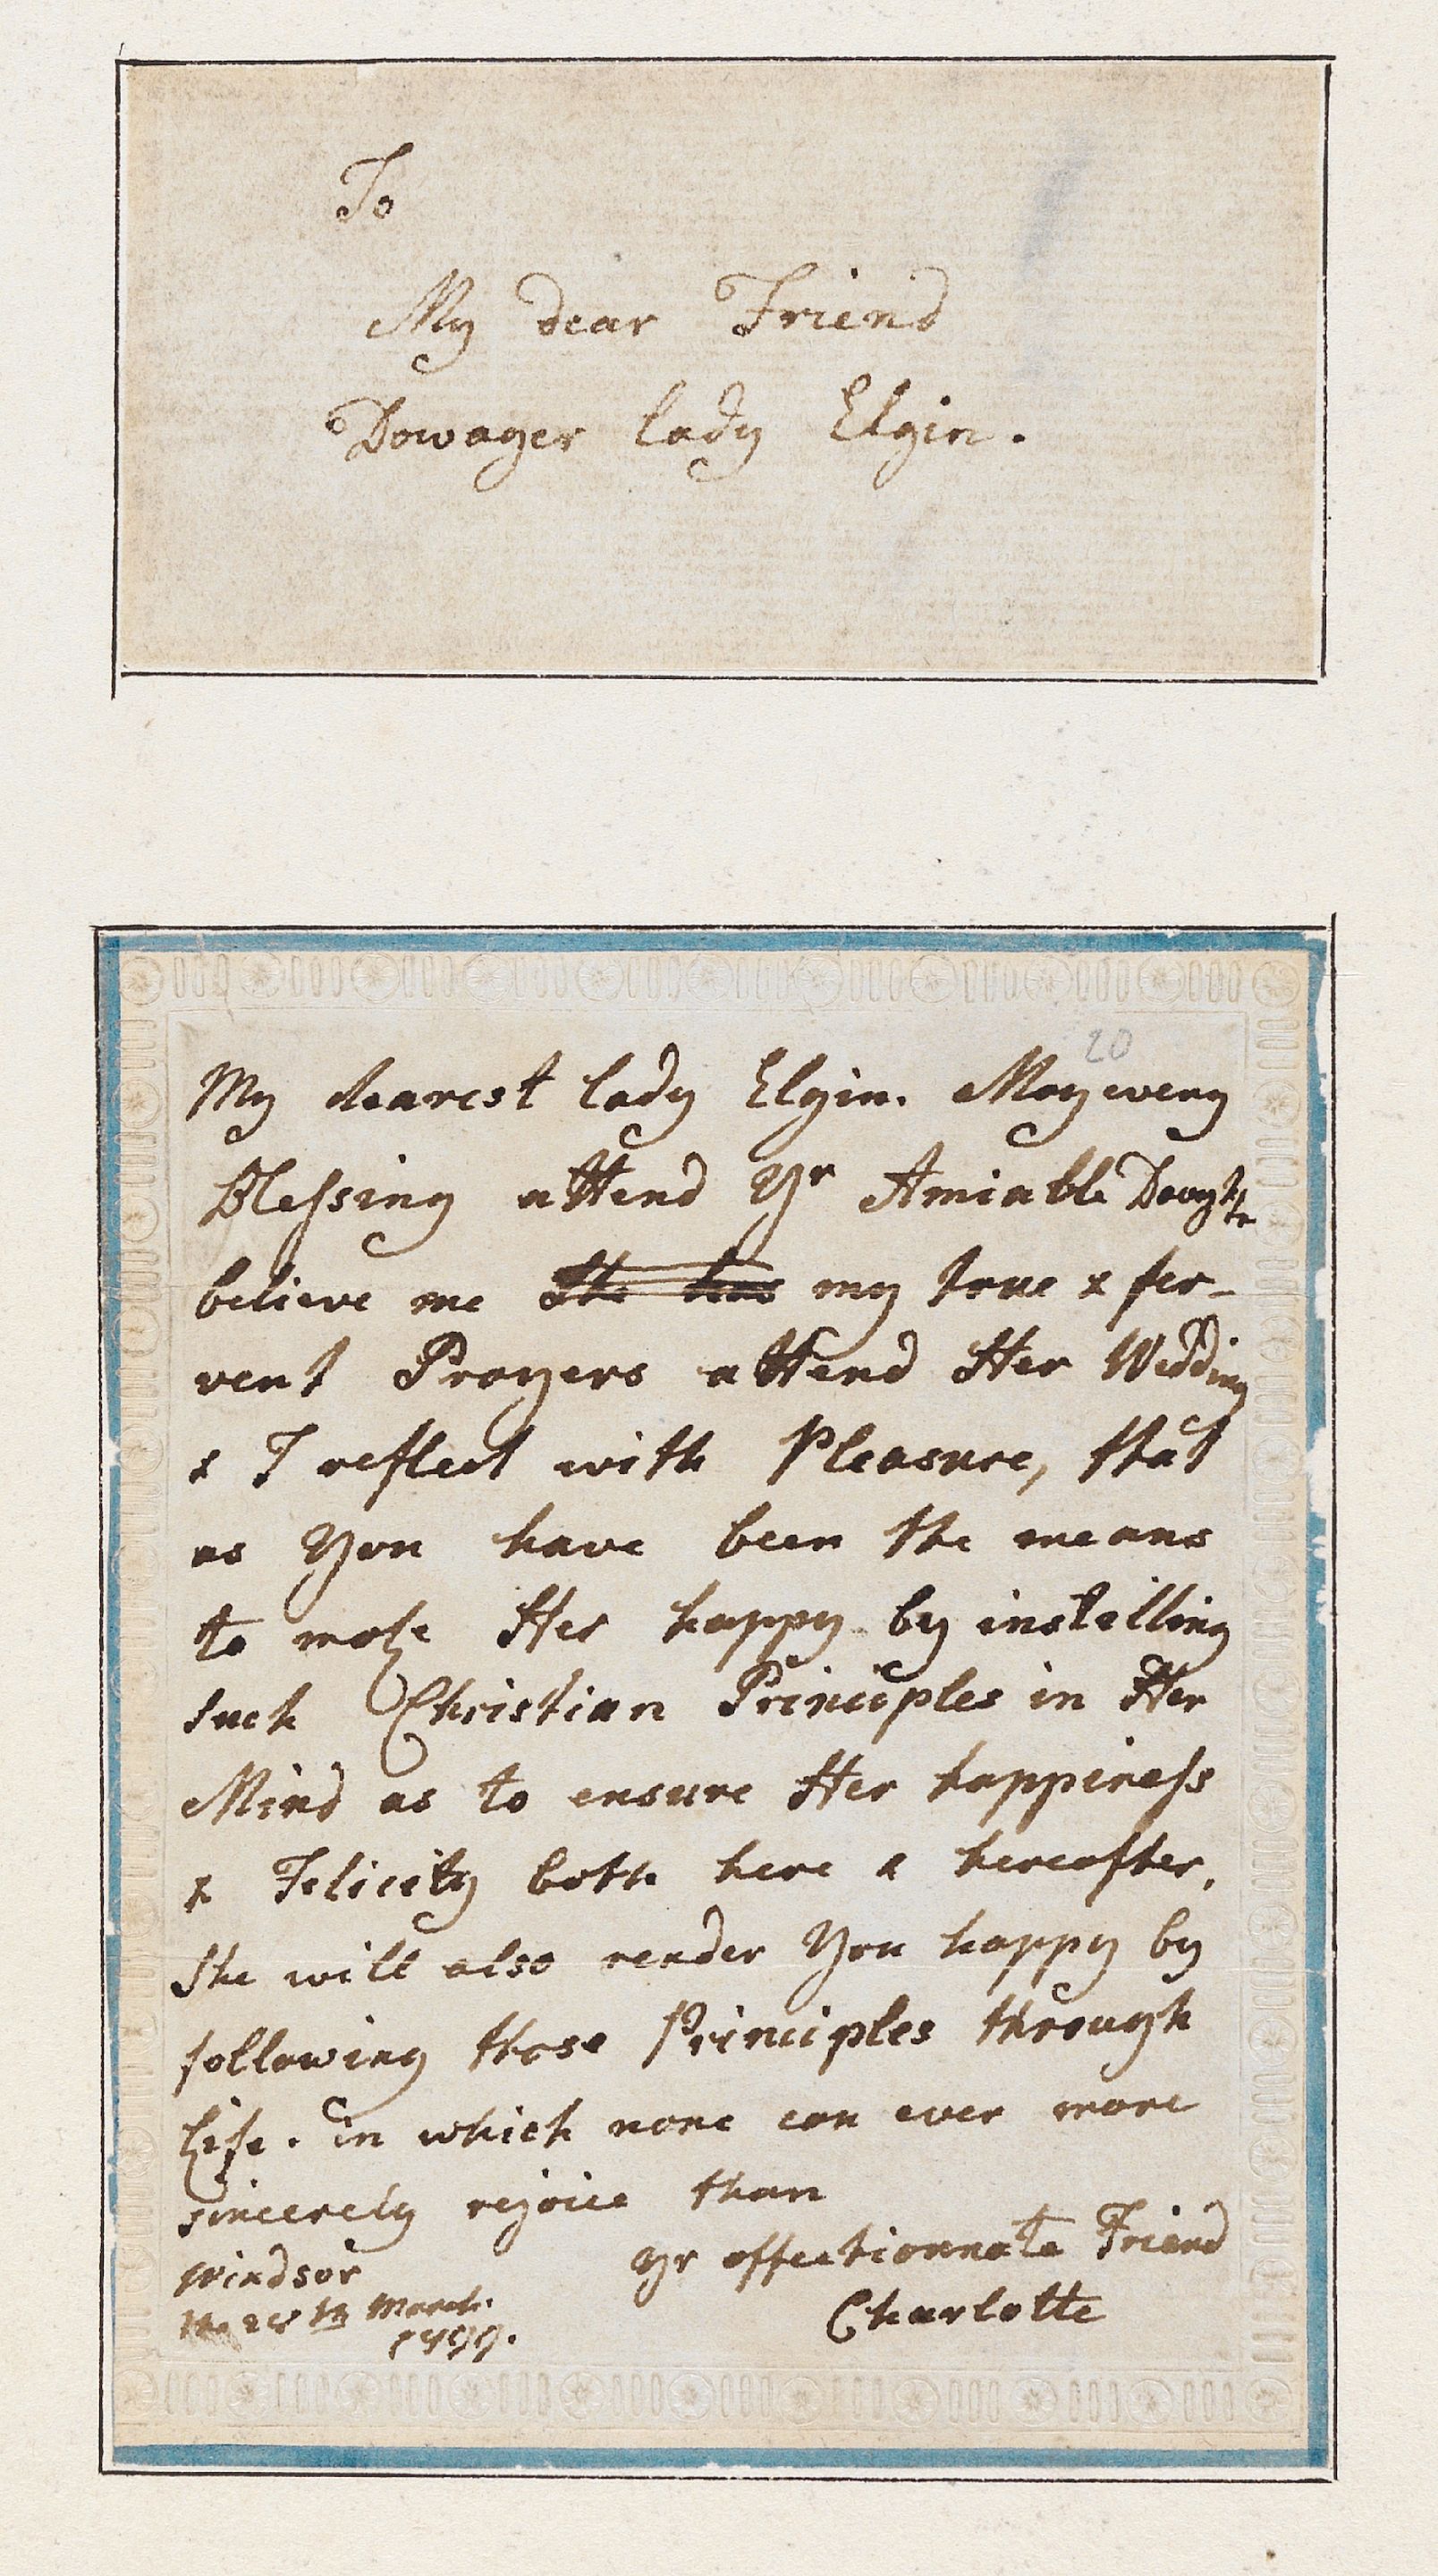 To
My dear Friend
Dowager Lady Elgin.
20
My dearest Lady Elgin. May every
Blefsing attend Yr Amiable Daughtr
believe me She has my true & fer-
vent Prayers attend Her Wedding
& I reflect with Pleasure, that
as You have been the means
to make Her happy by instilling
such Christian Principles in Her
Mind as to ensure Her happinefs
& Felicity both here & hereafter,
She will also render You happy by
following those Principles through
Life. in which none can ever more
sincerely rejoice than
Yr affectionnate Friend
Charlotte
Windsor
the th March.
1799.